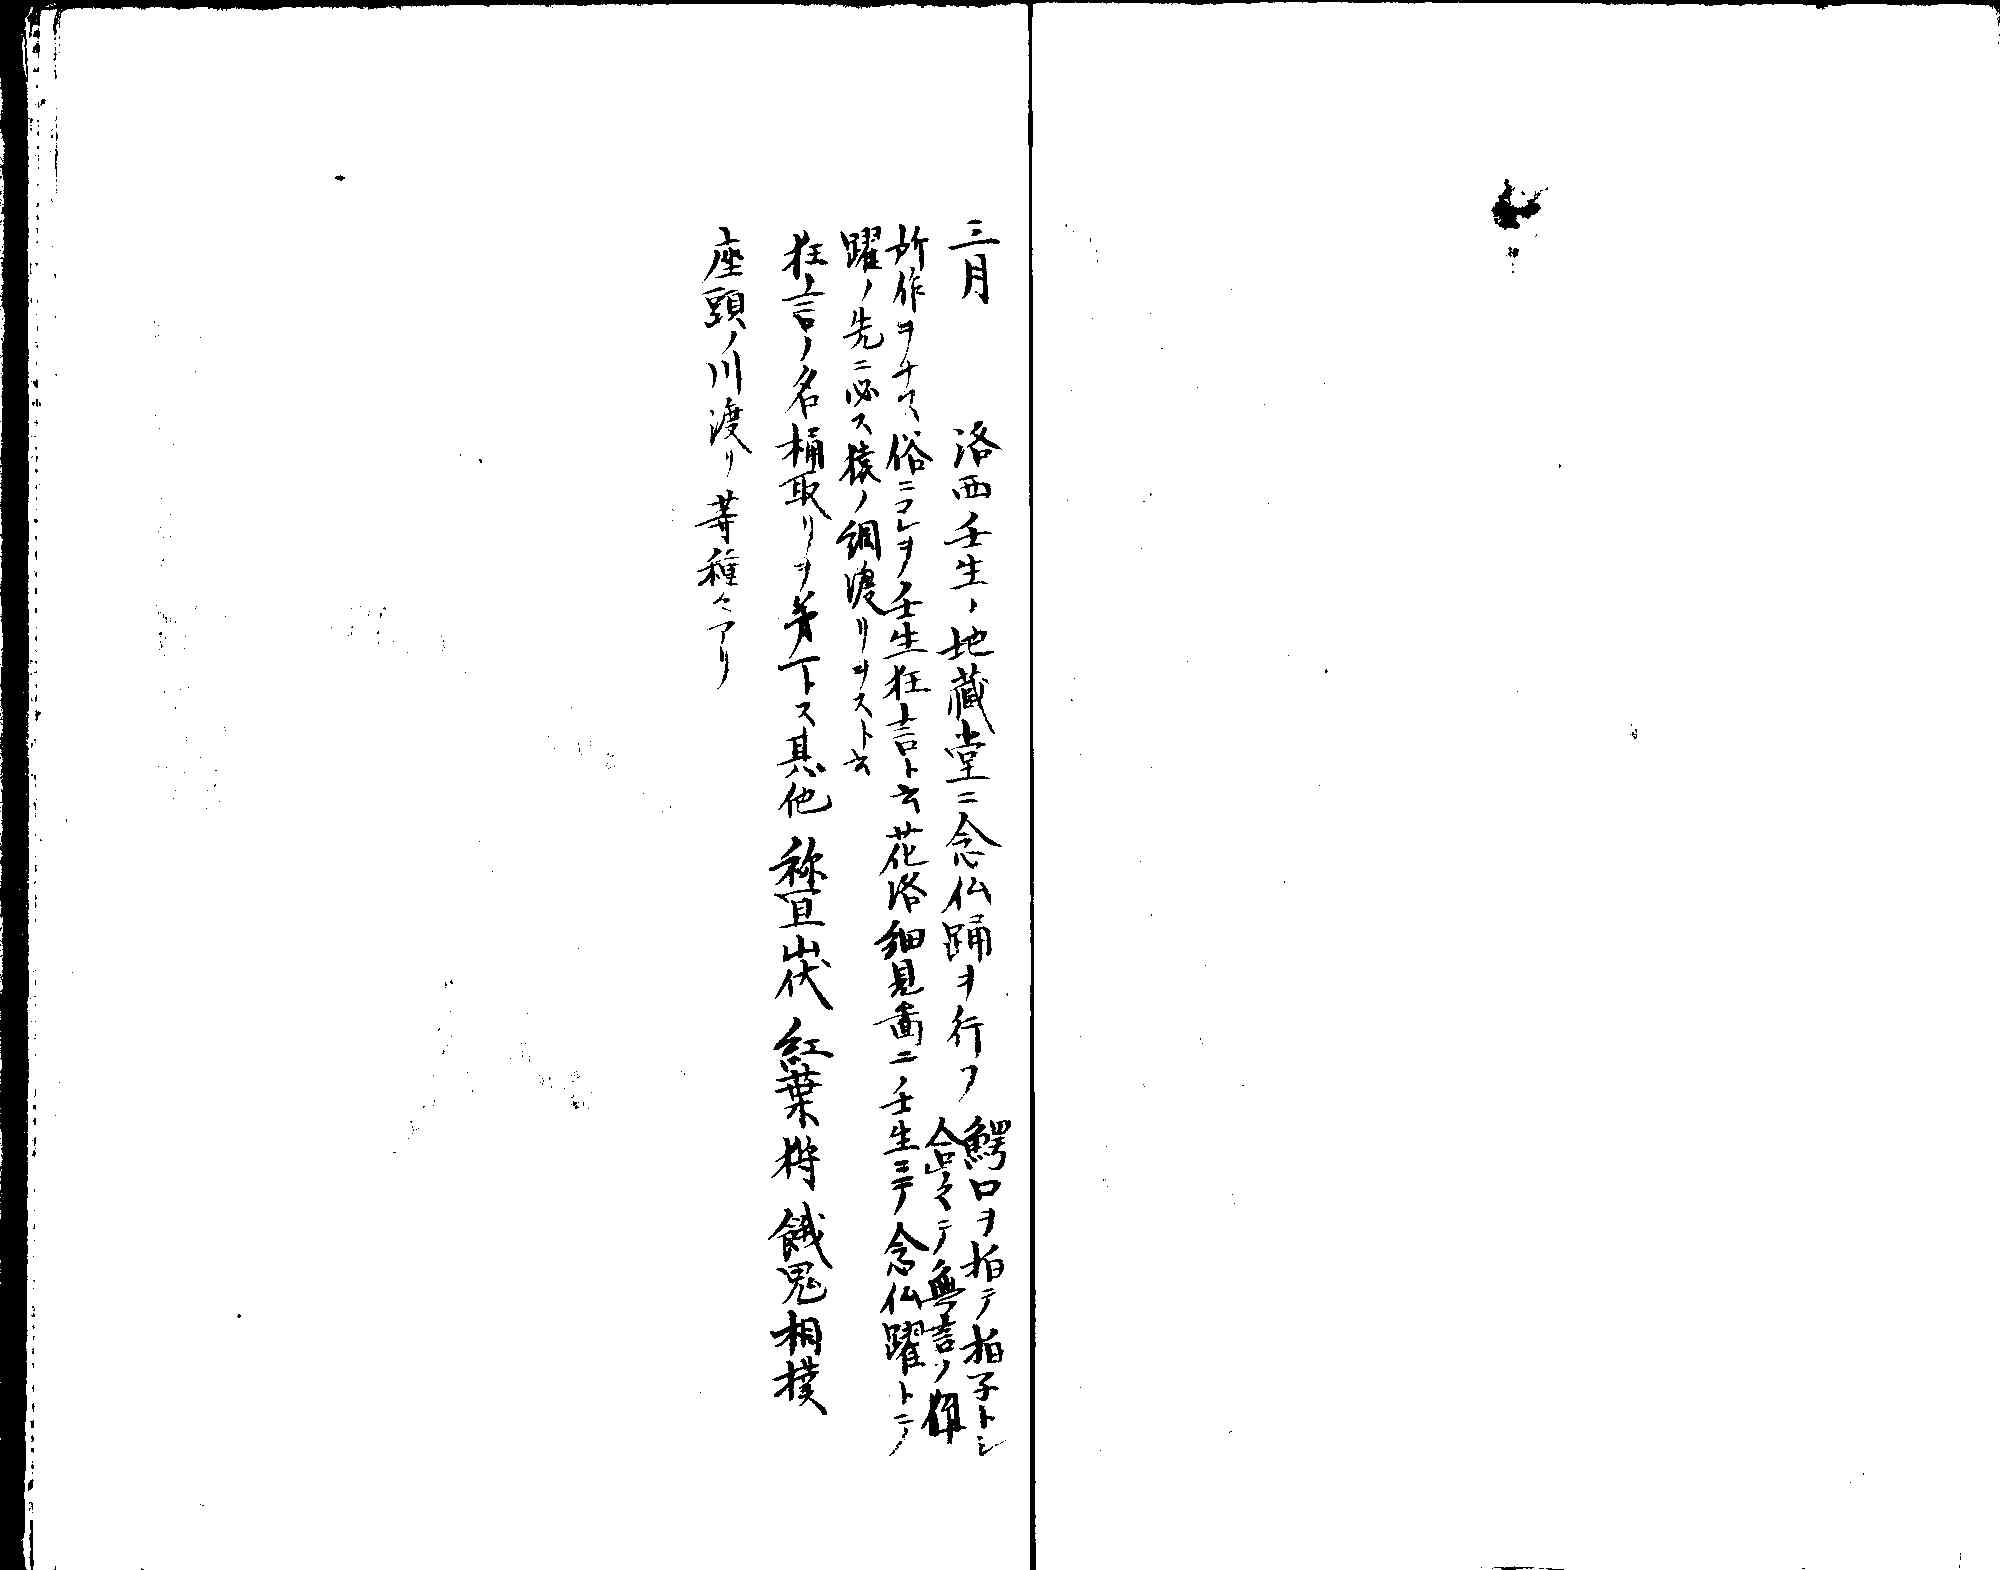 三月　洛西壬生ノ地蔵堂ニ念仏踊ヲ行フ
鰐口ヲ拍テ拍子トシ
合ニテ無言ノ
所作ヲナス俗ニコレヲ壬生狂言ト云花洛細見啚ニ壬生ニテ念仏躍トテ
躍ノ先ニ必ス猿ノ綱渡リヲスト云
狂言ノ名桶取リヲ第一トス其他　祢宜山伏　紅葉狩　餓鬼相撲
座頭ノ川渡リ等種々アリ